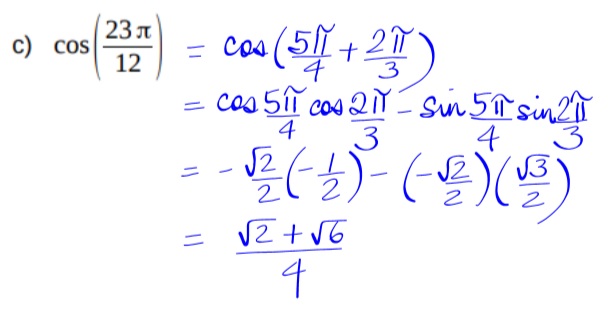 c) cos(23π/12) = cos(5π/4 + 2π/3)
= cos 5π/4 cos 2π/3 - sin 5π/4 sin 2π/3
= -√2/2 (-1/2) - (-√2/2)(√3/2)
= (√2 + √6)/4